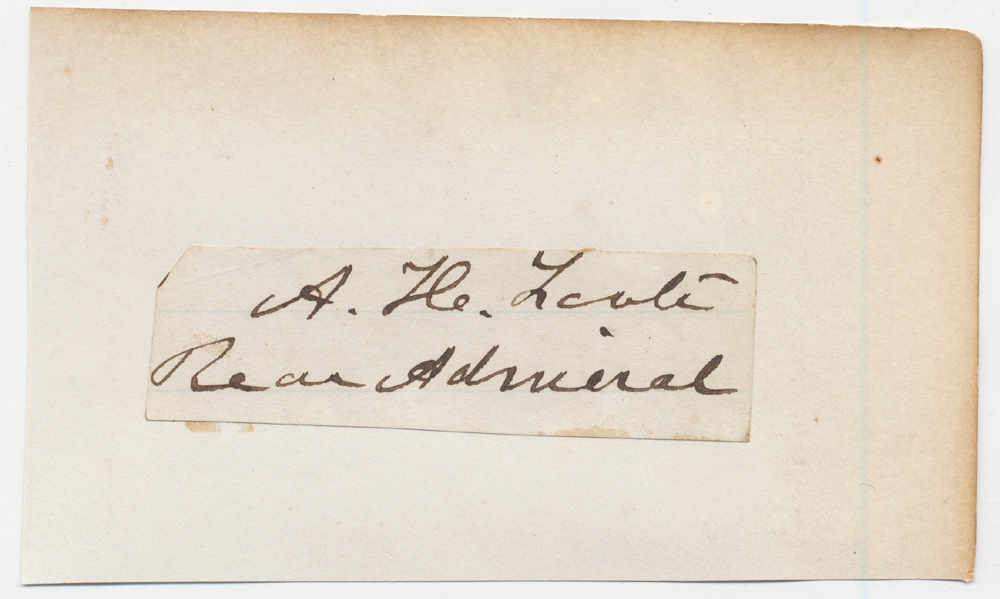 A. H. Foote
Rear Admiral